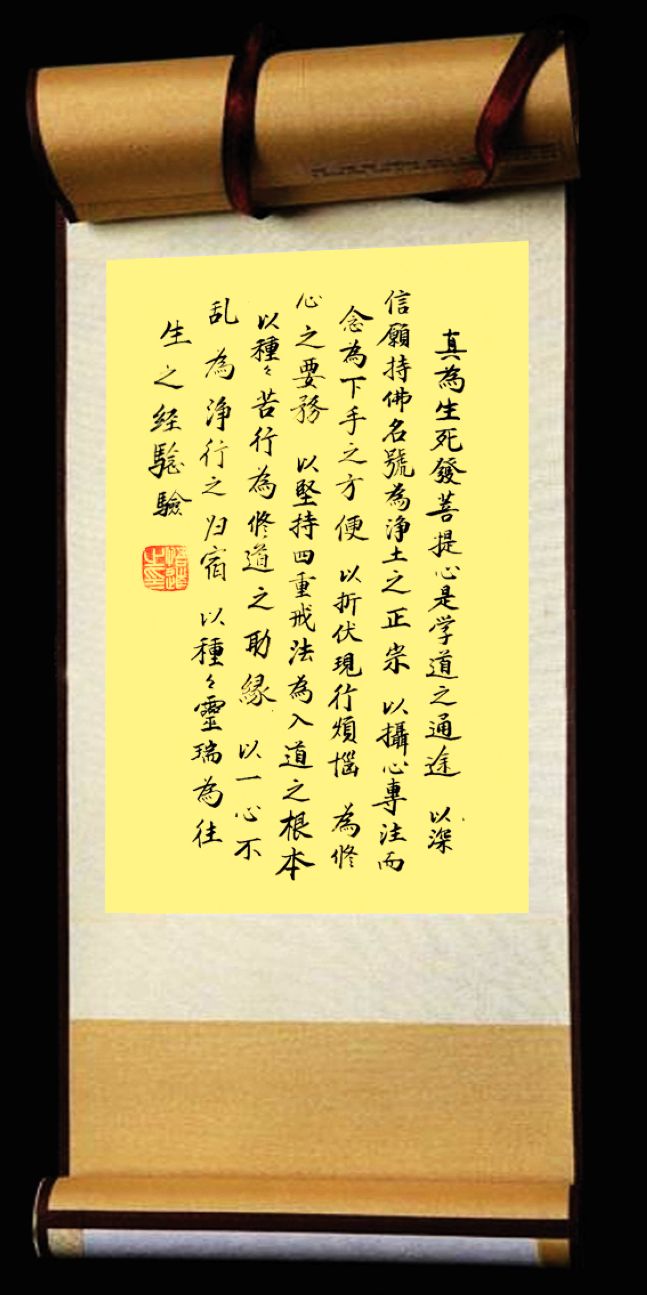 真為生死發菩提心是学道之通途 以深
信願持佛名號為淨土之正崇 以攝心專注而
念為下手之方便 以折伏現行煩惱 為修
心之要務 以堅持四重戒法為入道之根本
以種々苦行為修道之助緣 以一心不
乱 為淨行之归宿 以種々靈瑞為往
生之经騐驗